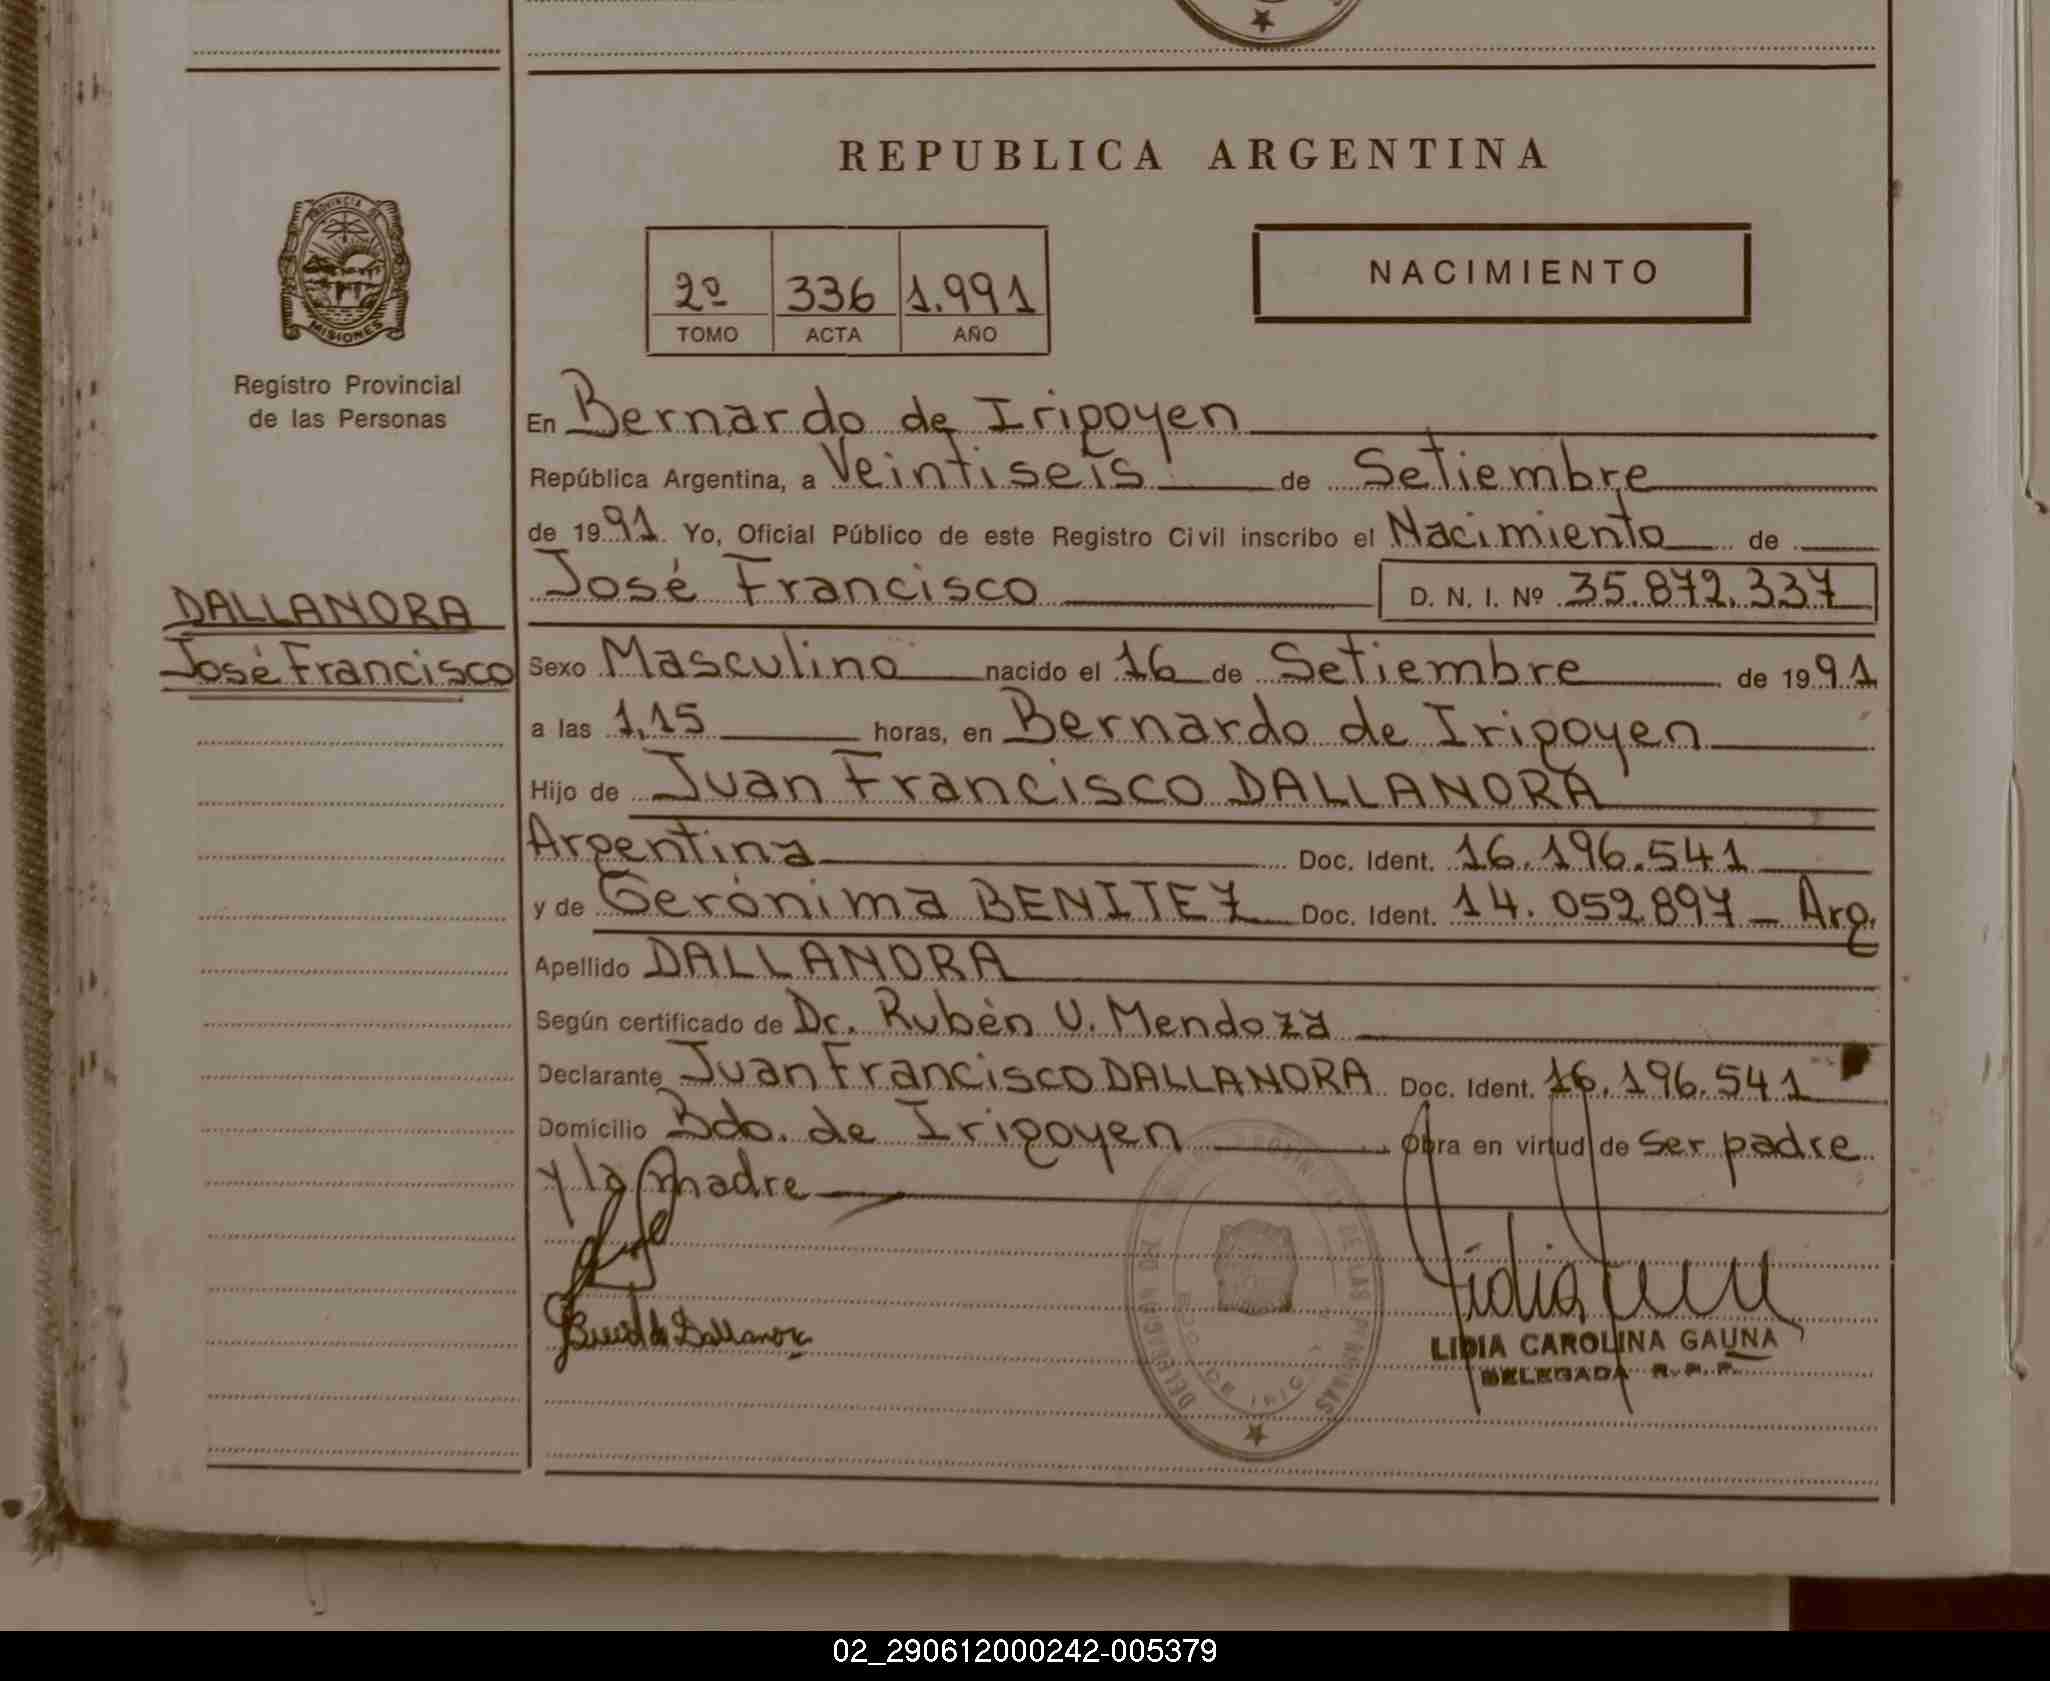 REPUBLICA ARGENTINA
PROVINCIA DE
MISIONES
Registro Provincial
de las Personas
2º 336 1.991
TOMO ACTA AÑO
NACIMIENTO
En Bernardo de Irigoyen
República Argentina, a Veintiseis de Setiembre
de 1991 Yo, Oficial Público de este Registro Civil inscribo el Nacimiento de
José Francisco D. N. I. Nº 35.872.337
DALLANORA
José Francisco
Sexo Masculino nacido el 16 de Setiembre de 1991
a las 1,15 horas, en Bernardo de Irigoyen
Hijo de Juan Francisco DALLANORA
Argentina Doc. Ident. 16.196.541
y de Gerónima BENITEZ Doc. Ident. 14.052.897 - Arg.
Apellido DALLANORA
Según certificado de Dr. Rubén U. Mendoza
Declarante Juan Francisco DALLANORA Doc. Ident. 16.196.541
Domicilio Bdo. de Irigoyen Obra en virtud de ser padre
y la madre
de Dallanora
LIDIA CAROLINA GAUNA
DELEGADA R.P.P.
02_290612000242-005379